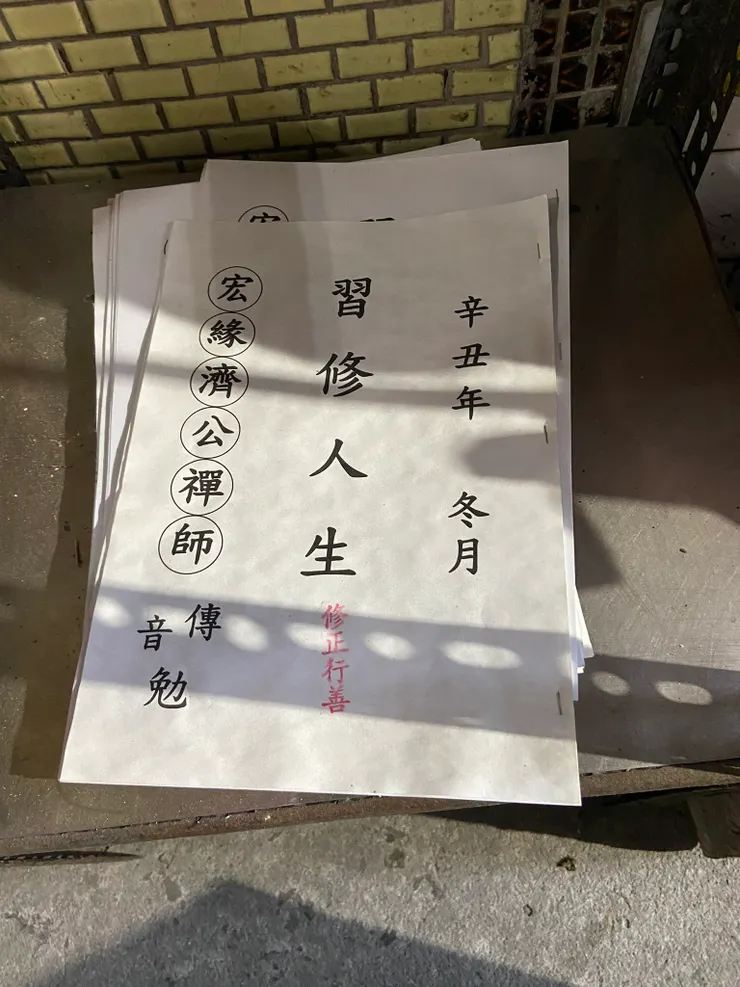 辛丑年 冬月
習修人生
修正行善
宏緣濟公禪師
傳音勉